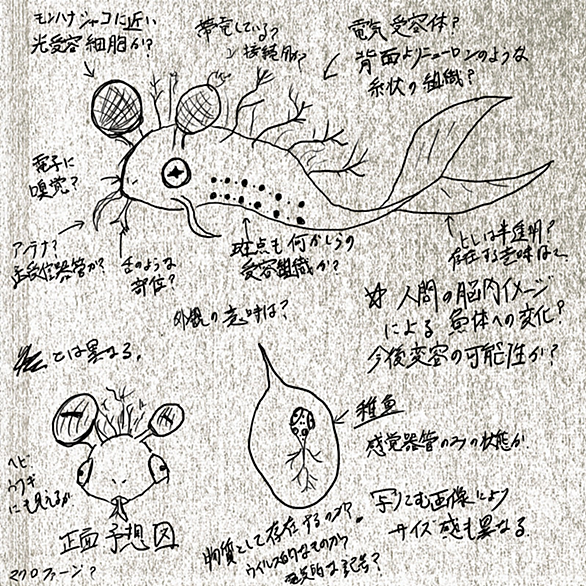 モンハナシャコに近い
光受容細胞か?
帯電している?
接続肢か?
電気受容体?
背面よりニューロンのような
糸状の組織?
電子に
嗅覚?
アンテナ?
受信器管か?
舌のような
部位?
斑点も何かしらの
受容組織か?
ヒレは半透明?
存在する意味は?
外観の意味は?
※人間の脳内イメージ
による魚体への変化?
今後変容の可能性か?
とは異なる。
稚魚
感覚器管のみの状態か
ヘビ
ウサギ
にも見えるが
正面予想図
マクロファージ?
物質として存在するのか?
ウイルス的なものか?
電気的な記号?
写しても画像により
サイズ感も異なる